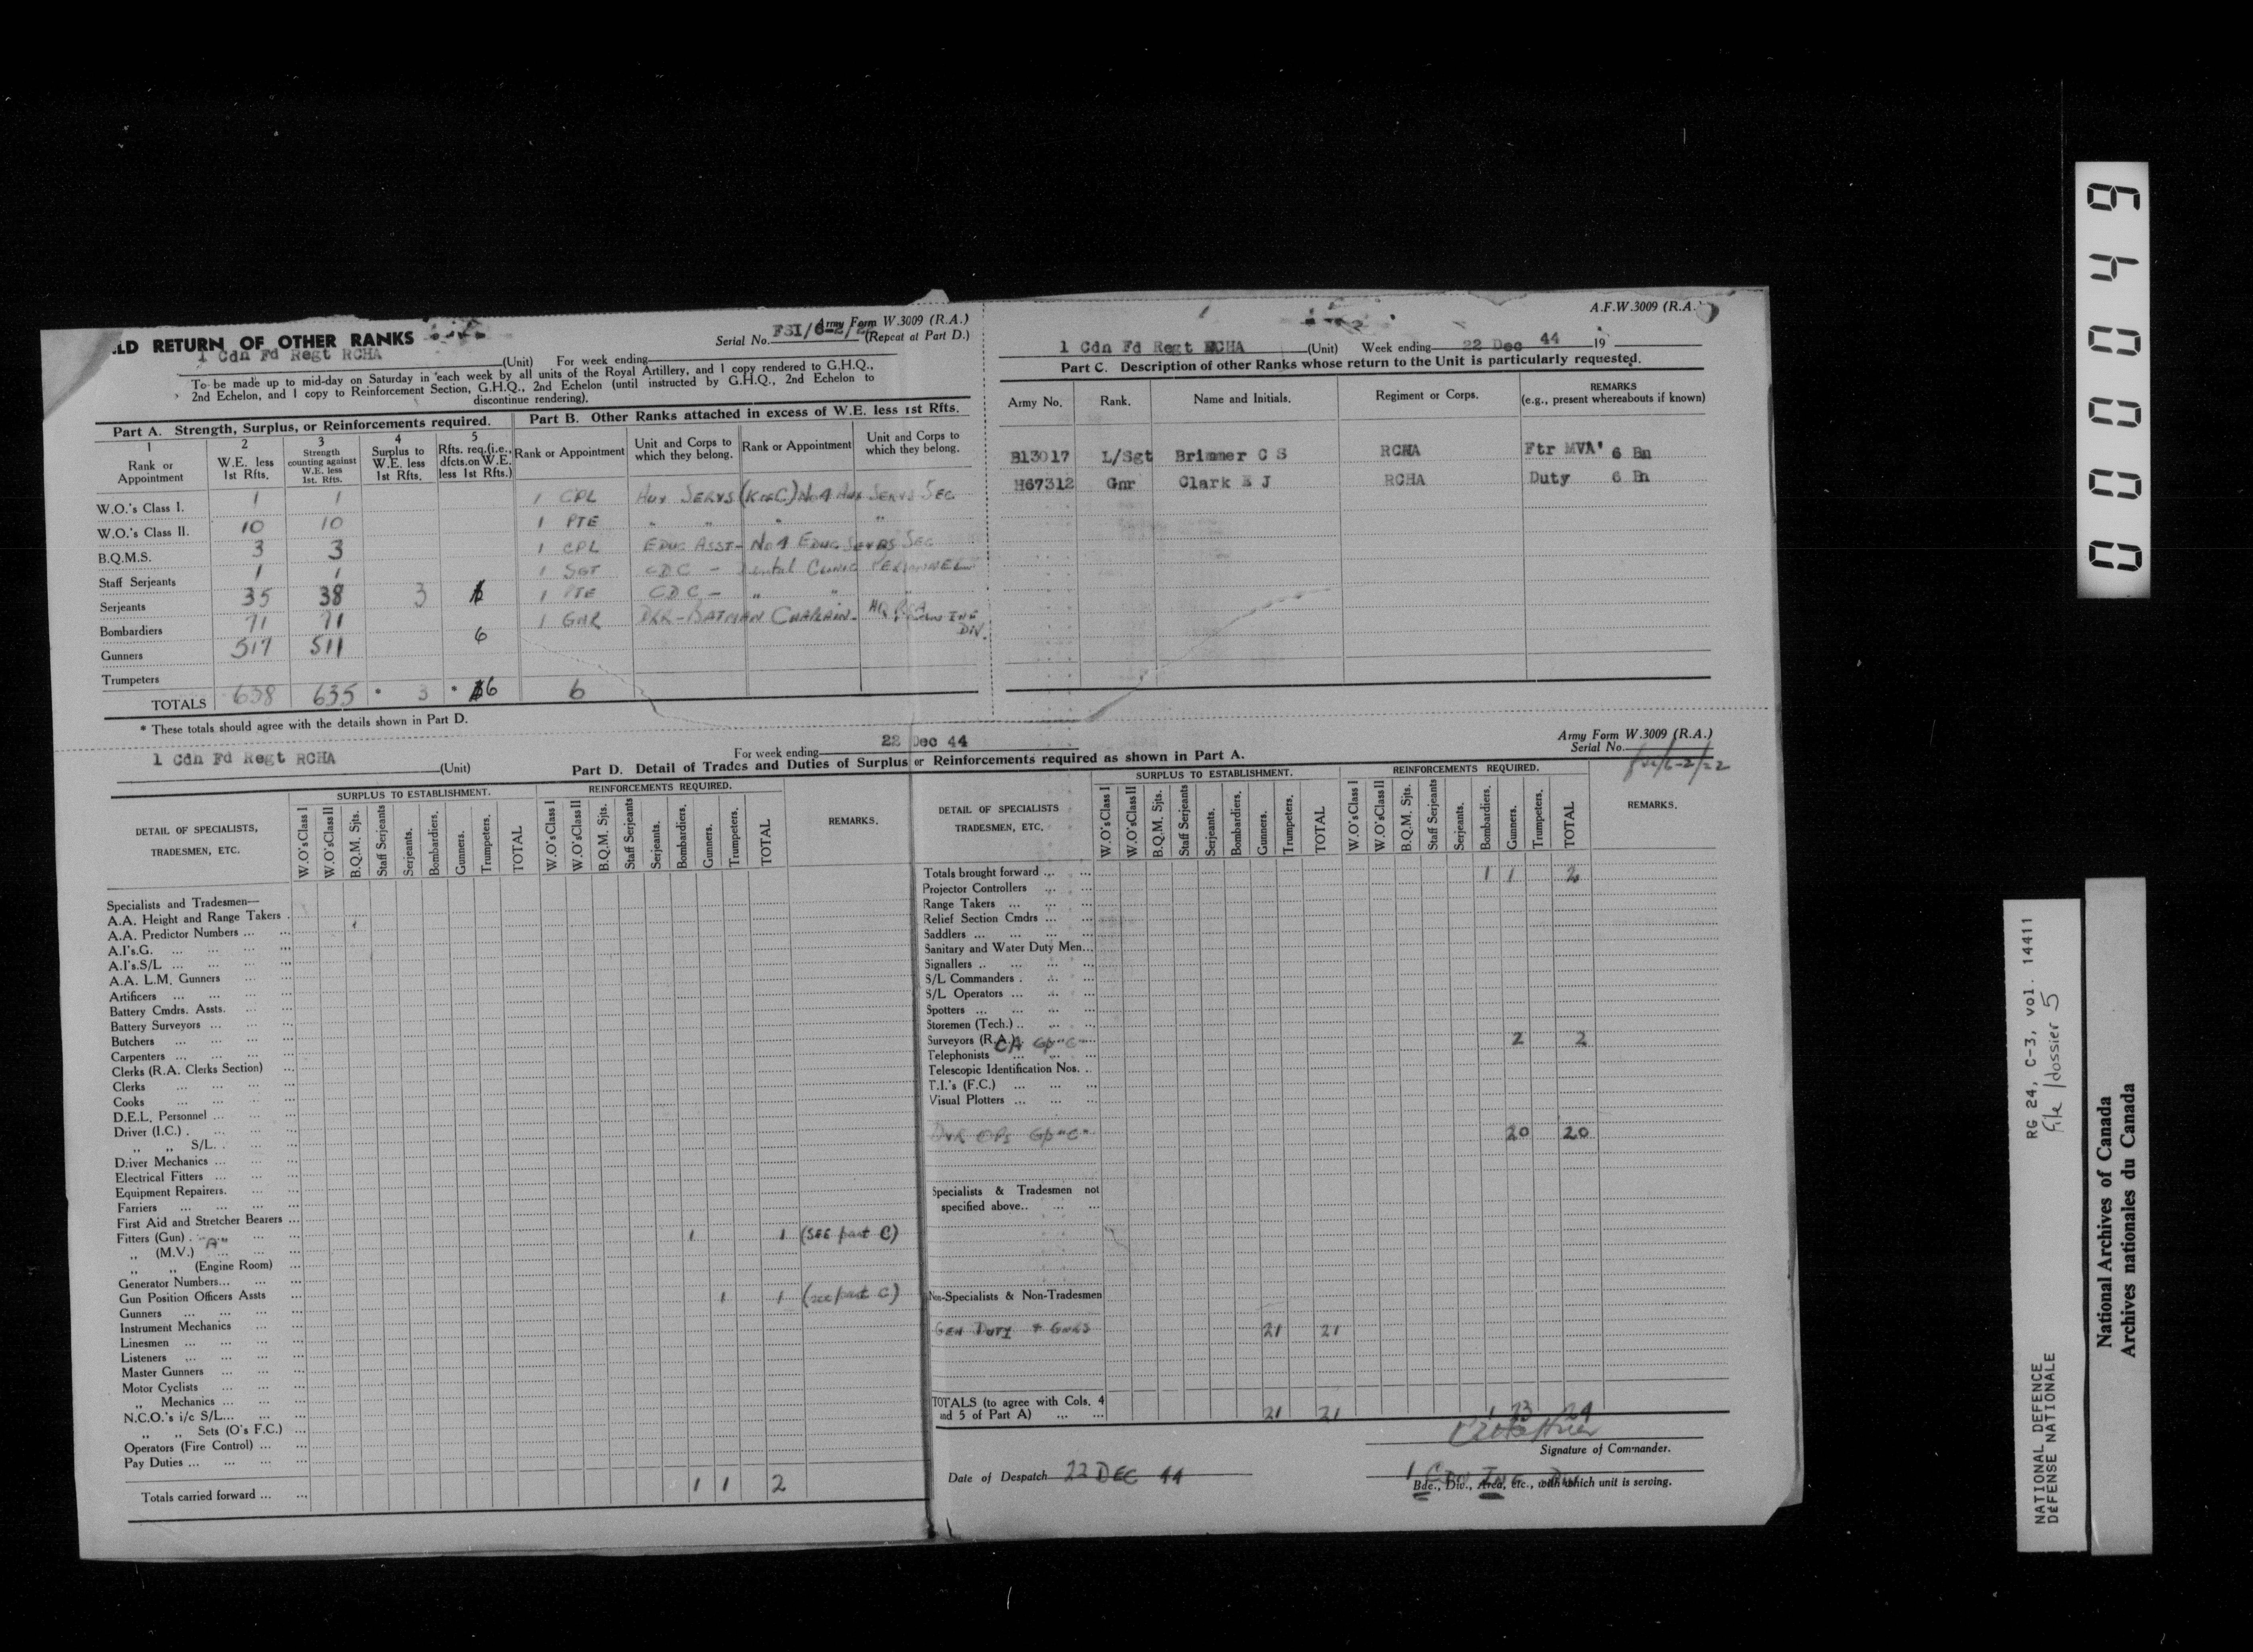 LD RETURN OF OTHER RANKS
Army Form W.3009 (R.A.)
Serial No. FSI/6-2/2 (Repeat at Part D.)
1 Cdn Fd Regt RCHA (Unit) For week ending
To be made up to mid-day on Saturday in each week by all units of the Royal Artillery, and 1 copy rendered to G.H.Q.,
2nd Echelon, and 1 copy to Reinforcement Section, G.H.Q., 2nd Echelon (until instructed by G.H.Q., 2nd Echelon to
discontinue rendering).
Part A. Strength, Surplus, or Reinforcements required.
1 2 3 4 5
Rank or Appointment
W.E. less 1st Rfts.
Strength counting against W.E. less 1st. Rfts.
Surplus to W.E. less 1st Rfts.
Rfts. req.(i.e., dfcts.on W.E. less 1st Rfts.)
W.O.'s Class I. 1 1
W.O.'s Class II. 10 10
B.Q.M.S. 3 3
Staff Serjeants 1 1
Serjeants 35 38 3
Bombardiers 71 71
Gunners 517 511 6
Trumpeters
TOTALS 638 635 * 3 * 6
* These totals should agree with the details shown in Part D.
Part B. Other Ranks attached in excess of W.E. less 1st Rfts.
Rank or Appointment
Unit and Corps to which they belong.
Rank or Appointment
Unit and Corps to which they belong.
1 CPL Aux SERVS (K of C) No 1 Aux SERVS SEC
1 PTE " " " "
1 CPL EDUC ASST - No 1 EDUC SERVS SEC
1 SGT CDC - Dental Clinic PERSONNEL
1 PTE CDC - " " "
1 GNR DVR-BATMAN CHAPLAIN - HQ RCA 1 Cdn INF DIV.
6
A.F.W.3009 (R.A.)
1 Cdn Fd Regt RCHA (Unit) Week ending 22 Dec 44 19
Part C. Description of other Ranks whose return to the Unit is particularly requested.
Army No. Rank. Name and Initials. Regiment or Corps. REMARKS
(e.g., present whereabouts if known)
B13017 L/Sgt Brimmer C S RCHA Ftr MVA' 6 Bn
H67312 Gnr Clark E J RCHA Duty 6 Bn
1 Cdn Fd Regt RCHA (Unit)
For week ending 22 Dec 44
Army Form W.3009 (R.A.)
Serial No.
Part D. Detail of Trades and Duties of Surplus or Reinforcements required as shown in Part A.
DETAIL OF SPECIALISTS, TRADESMEN, ETC.
SURPLUS TO ESTABLISHMENT.
W.O's Class I W.O's Class II B.Q.M. Sjts. Staff Serjeants Serjeants. Bombardiers. Gunners. Trumpeters. TOTAL
REINFORCEMENTS REQUIRED.
W.O's Class I W.O's Class II B.Q.M. Sjts. Staff Serjeants Serjeants. Bombardiers. Gunners. Trumpeters. TOTAL
REMARKS.
Specialists and Tradesmen—
A.A. Height and Range Takers
A.A. Predictor Numbers
A.I's.G.
A.I's.S/L
A.A. L.M. Gunners
Artificers
Battery Cmdrs. Assts.
Battery Surveyors
Butchers
Carpenters
Clerks (R.A. Clerks Section)
Clerks
Cooks
D.E.L. Personnel
Driver (I.C.)
" " S/L.
Driver Mechanics
Electrical Fitters
Equipment Repairers.
Farriers
First Aid and Stretcher Bearers
Fitters (Gun)
" (M.V.) "A" 1 1 (SEE part C)
" " (Engine Room)
Generator Numbers
Gun Position Officers Assts
Gunners 1 1 (see part C)
Instrument Mechanics
Linesmen
Listeners
Master Gunners
Motor Cyclists
" Mechanics
N.C.O.'s i/c S/L
" " Sets (O's F.C.)
Operators (Fire Control)
Pay Duties
Totals carried forward 1 1 2
DETAIL OF SPECIALISTS TRADESMEN, ETC.
SURPLUS TO ESTABLISHMENT.
W.O's Class I W.O's Class II B.Q.M. Sjts. Staff Serjeants Serjeants. Bombardiers. Gunners. Trumpeters. TOTAL
REINFORCEMENTS REQUIRED.
W.O's Class I W.O's Class II B.Q.M. Sjts. Staff Serjeants Serjeants. Bombardiers. Gunners. Trumpeters. TOTAL
REMARKS.
Totals brought forward 1 1 2
Projector Controllers
Range Takers
Relief Section Cmdrs
Saddlers
Sanitary and Water Duty Men
Signallers
S/L Commanders
S/L Operators
Spotters
Storemen (Tech.)
Surveyors (R.A.) C/A Gp "C" 2 2
Telephonists
Telescopic Identification Nos.
T.I.'s (F.C.)
Visual Plotters
DVR OPs Gp "C" 20 20
Specialists & Tradesmen not
specified above
Non-Specialists & Non-Tradesmen
GEN DUTY & GNRS 21 21
TOTALS (to agree with Cols. 4
and 5 of Part A) 21 21 1 23 24
Signature of Commander.
Date of Despatch 22 DEC 44
1 CDN INF DIV
Bde., Div., Area, etc., with which unit is serving.
000049
RG 24, C-3, vol. 14411
file/dossier 5
NATIONAL DEFENCE
DÉFENSE NATIONALE
National Archives of Canada
Archives nationales du Canada